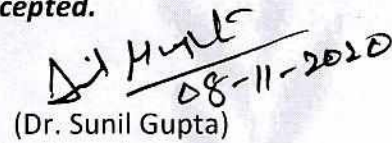 cepted.
08-11-2020
(Dr. Sunil Gupta)